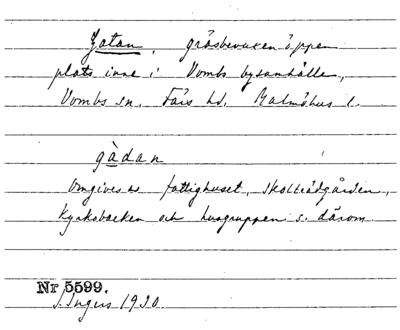 Gatan, gräsbevuxen öppen
plats inne i Vombs bysamhälle,
Vombs sn. Färs hd. Malmöhus l.
gàdan
Omgives av fattighuset, skolträdgården,
kyrkobacken och husgruppen s. därom.
Nr 5599.
I. Ingers 1930.